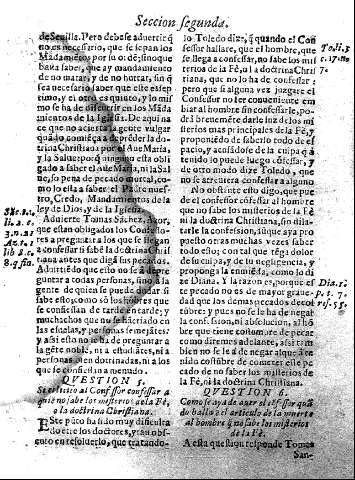 Seccion segunda.
de Seuilla. Pero debese aduertir q̃
no es necesario, que se sepan los
Mãdamiẽtos por su ordẽ; sino que
basta saber, que ay mandamiento
de no matar, y de no hurtar, sin q̃
sea necesario saber que este es sep-
timo, y el otro es quinto, y lo mis-
mo se ha de discurrir en los Mãda
mientos de la Iglesia. De aqui na
ce que no acierta la gente vulgar
quãdo comiẽça a deprẽder la do-
ctrina Christiana por el Aue Maria,
y la Salue: porq̃ ninguno esta obli
gado a saber el Aue Maria, ni la Sal
ue, so pena de pecado mortal, co-
mo lo està a saber el Padre nues-
tro, Credo, Mandamientos de la
ley de Dios, y de la Iglesia.
Aduierte Tomas Sãchez
que estan obligados los Confesso-
res a preguntar a los que se llegan
a confessar si sabẽ la doctrina Chris
tiana antes que digã sus pecados.
Aduirtiẽdo que esto no se à
guntar a todas personas, sino a la
gente de quien se puede
sabe esto; como sõ los hombres que
se confiessan de tarde en tarde; y
muchachos que no se hã criado en
las escuelas, y personas semejãtes:
y assi esto no se hà de preguntar a
la gẽte noble, ni a estudiãtes, ni a
personas adotrinadas, ni a los
que se confiessan a menudo.
QVESTION 5.
Si es licito al Confessor confessar a
quiẽ no sabe los misterios de la Fè,
o la doctrina Christiana.
Este pũto ha sido muy dificulta
do entre los doctores, y tan obs-
curo en resoluerlo, que tratando-
San. 2.
li. 2. c.
3. n. 21
Az. 1.
lib. 8. c.
8. q. fin.
lo Toledo dize, q̃ quando el Con
fessor hallare, que el hombre, que
se llega a confessar, no sabe los mis
terios de la Fè, ò la doctrina Chris
tiana, que no lo ha de confessar:
pero que si alguna vez juzgare el
Confessor no ser conueniente em
biar al hombre sin confessarle, po-
drà breuemẽte darle luz de los mis
terios mas principales de la Fè, y
proponiẽdo de saberlo todo de es-
pacio, y acusãdose de la culpa q̃ à
tenido lo puede luego cõfessar, y
de otro modo dize Toledo, que
no se atreuiera confessar a alguno
No obstante esto digo, que pue
de el confessor cõfessar al hombre
que no sabe los misterios de la Fè
ni la doctrina Christiana, sin dila-
tarle la confession, aũque aya pro
puesto otras muchas vezes saber
todo esto; con tal que tẽga dolor
de su culpa, y de su negligencia, y
proponga la enmiẽda, como lo di
ze Diana. Y la razon es, porque es
te pecado no es de mayor graue-
dad que los demas pecados de cos
tũbre: y pues no se le ha de negar
la confission, ni absolucion, al hõ
bre que tiene costumbre de pecar
como diremos adelante, assi tam
bien no se le à de negar al que à te
nido costũbre de cometer este pe
cado de no saber los misterios de
la Fè, ni la doctrina Christiana.
QVESTION 6.
Como se aya de auer el cõfessor quã
do halla en el articulo de la muerte
al hombre q̃ no sabe los misterios
de la Fè.
A esta question responde Tomas
San-
Tol. l. 3
c. 17. no
7.
Dia. 1.
p. t. 7.
res. 55.